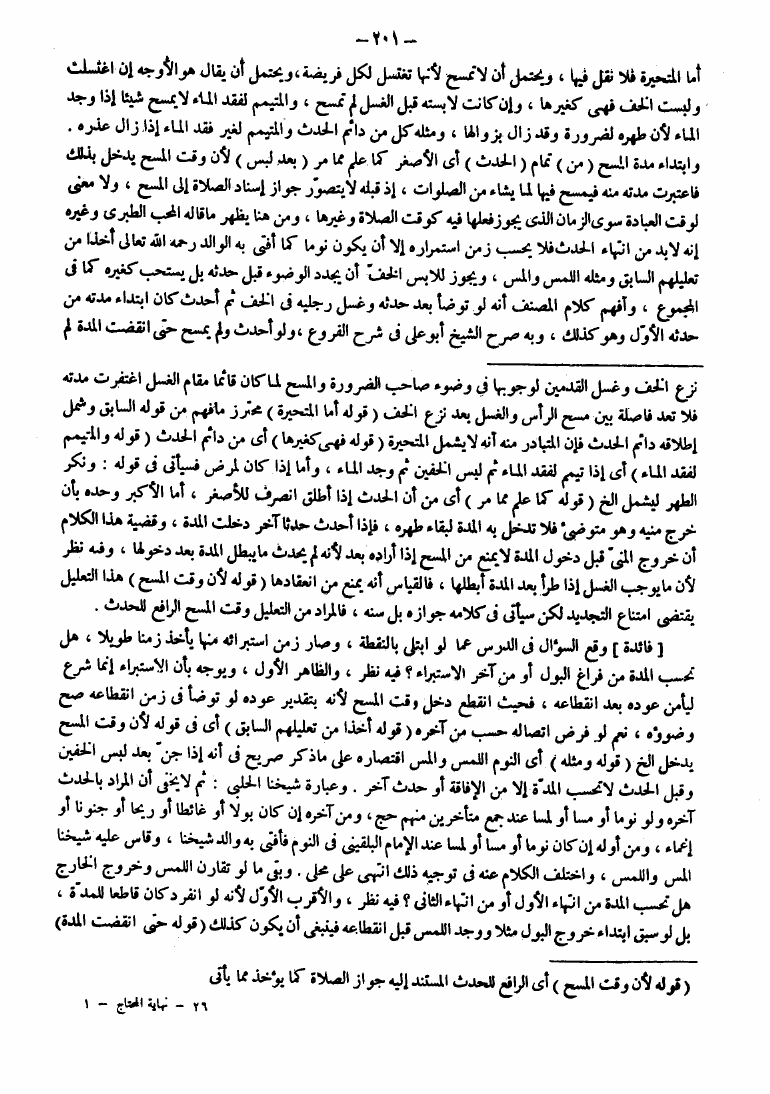 – ٢٠١ –
أما المتحيرة فلا نقل فيها ، ويحتمل أن لا تمسح لأنها تغتسل لكل فريضة، ويحتمل أن يقال هو الأوجه إن اغتسلت
ولبست الخف فهى كغيرها ، وإن كانت لابسته قبل الغسل لم تمسح ، والمتيمم لفقد الماء لايمسح شيئا إذا وجد
الماء لأن طهره لضرورة وقد زال بزوالها ، ومثله كل من دائم الحدث والمتيمم لغير فقد الماء إذا زال عذره .
وابتداء مدة المسح ( من ) تمام ( الحدث ) أى الأصغر كما علم مما مر ( بعد لبس ) لأن وقت المسح يدخل بذلك
فاعتبرت مدته منه فيمسح فيها لما يشاء من الصلوات ، إذ قبله لايتصوّر جواز إسناد الصلاة إلى المسح ، ولا معنى
لوقت العبادة سوى الزمان الذى يجوز فعلها فيه كوقت الصلاة وغيرها ، ومن هنا يظهر ماقاله المحب الطبرى وغيره
إنه لابد من انتهاء الحدث فلا يحسب زمن استمراره إلا أن يكون نوما كما أفتى به الوالد رحمه الله تعالى أخذا من
تعليلهم السابق ومثله اللمس والمس ، ويجوز للابس الخفّ أن يجدد الوضوء قبل حدثه بل يستحب كغيره كما فى
المجموع ، وأفهم كلام المصنف أنه لو توضأ بعد حدثه وغسل رجليه فى الخف ثم أحدث كان ابتداء مدته من
حدثه الأوّل وهو كذلك ، وبه صرح الشيخ أبوعلى فى شرح الفروع ، ولو أحدث ولم يمسح حتى انقضت المدة لم
نزع الخف وغسل القدمين لوجوبها فى وضوء صاحب الضرورة والمسح لما كان قائما مقام الغسل اغتفرت مدته
فلا تعد فاصلة بين مسح الرأس والغسل بعد نزع الخف ( قوله أما المتحيرة ) محترز مافهم من قوله السابق وشمل
إطلاقه دائم الحدث فإن المتبادر منه أنه لايشمل المتحيرة ( قوله فهى كغيرها ) أى من دائم الحدث ( قوله والمتيمم
لفقد الماء ) أى إذا تيمم لفقد الماء ثم لبس الخفين ثم وجد الماء ، وأما إذا كان لمرض فسيأتى فى قوله : ونكر
الطهر ليشمل الخ ( قوله كما علم مما مر ) أى من أن الحدث إذا أطلق انصرف للأصغر ، أما الأكبر وحده بأن
خرج منيه وهو متوضئ فلا تدخل به المدة لبقاء طهره ، فإذا أحدث حدثا آخر دخلت المدة ، وقضية هذا الكلام
أن خروج المنىّ قبل دخول المدة لايمنع من المسح إذا أراده بعد لأنه لم يحدث مايبطل المدة بعد دخولها ، وفيه نظر
لأن مايوجب الغسل إذا طرأ بعد المدة أبطلها ، فالقياس أنه يمنع من انعقادها ( قوله لأن وقت المسح ) هذا التعليل
يقتضى امتناع التجديد لكن سيأتى فى كلامه جوازه بل سنه ، فالمراد من التعليل وقت المسح الرافع للحدث .
[ فائدة ] وقع السؤال فى الدرس عما لو ابتلى بالنقطة ، وصار زمن استبرائه منها يأخذ زمنا طويلا ، هل
تحسب المدة من فراغ البول أو من آخر الاستبراء ؟ فيه نظر ، والظاهر الأول ، ويوجه بأن الاستبراء إنما شرع
ليأمن عوده بعد انقطاعه ، فحيث انقطع دخل وقت المسح لأنه بتقدير عوده لو توضأ فى زمن انقطاعه صح
وضوؤه ، نعم لو فرض اتصاله حسب من آخره ( قوله أخذا من تعليلهم السابق ) أى فى قوله لأن وقت المسح
يدخل الخ ( قوله ومثله ) أى النوم اللمس والمس اقتصاره على ماذكر صريح فى أنه إذا جنّ بعد لبس الخفين
وقبل الحدث لاتحسب المدّة إلا من الإفاقة أو حدث آخر . وعبارة شيخنا الحلبى : ثم لايخفى أن المراد بالحدث
آخره ولو نوما أو مسا أو لمسا عند جمع متأخرين منهم حج، ومن آخره إن كان بولا أو غائطا أو ريحا أو جنونا أو
إغماء ، ومن أوله إن كان نوما أو مسا أو لمسا عند الإمام البلقينى فى النوم فأفتى به والد شيخنا ، وقاس عليه شيخنا
المس واللمس ، واختلف الكلام عنه فى توجيه ذلك انتهى على محلى . وبقى ما لو تقارن اللمس وخروج الخارج
هل تحسب المدة من انتهاء الأول أو من انتهاء الثانى ؟ فيه نظر ، والأقرب الأوّل لأنه لو انفرد كان قاطعا للمدّة ،
بل لو سبق ابتداء خروج البول مثلا ووجد اللمس قبل انقطاعه فينبغى أن يكون كذلك ( قوله حتى انقضت المدة)
( قوله لأن وقت المسح ) أى الرافع للحدث المستند إليه جواز الصلاة كما يؤخذ مما يأتى
٢٦ – نهاية المحتاج – ١